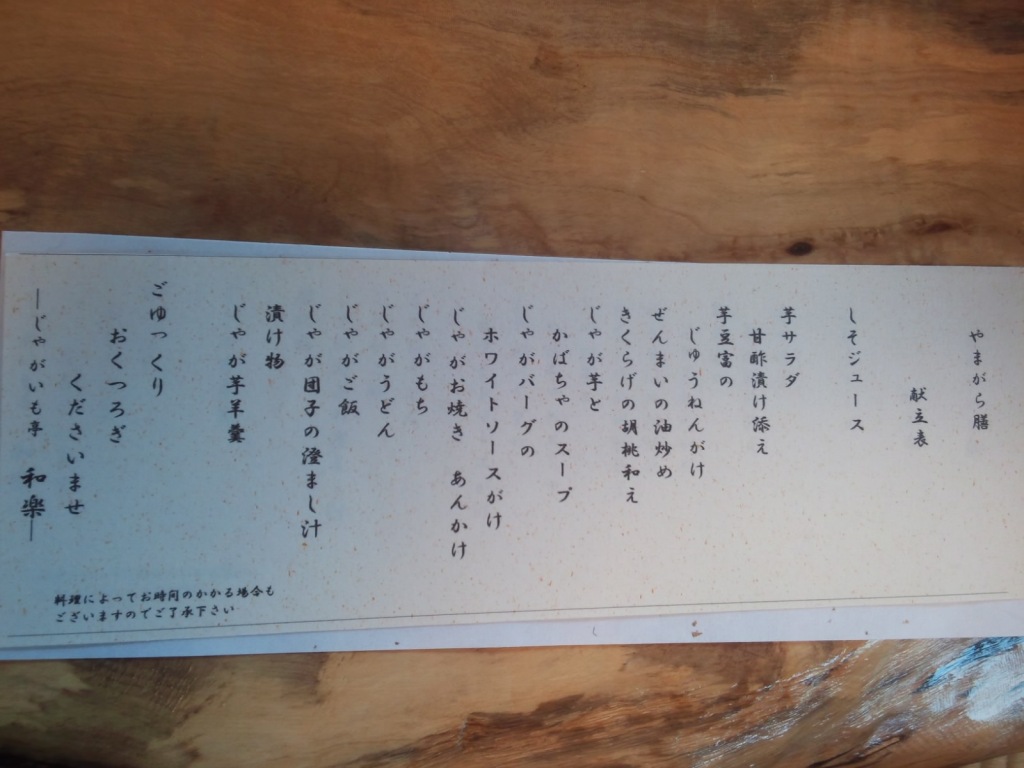 やまがら膳
献立表
しそジュース
芋サラダ
甘酢漬け添え
芋豆富の
じゅうねんがけ
ぜんまいの油炒め
きくらげの胡桃和え
じゃが芋と
かぼちゃのスープ
じゃがバーグの
ホワイトソースがけ
じゃがお焼き あんかけ
じゃがもち
じゃがうどん
じゃがご飯
じゃが団子の澄まし汁
漬け物
じゃが芋羊羹
ごゆっくり
おくつろぎ
くださいませ
―じゃがいも亭 和楽―
料理によってお時間のかかる場合も
ございますのでご了承下さい